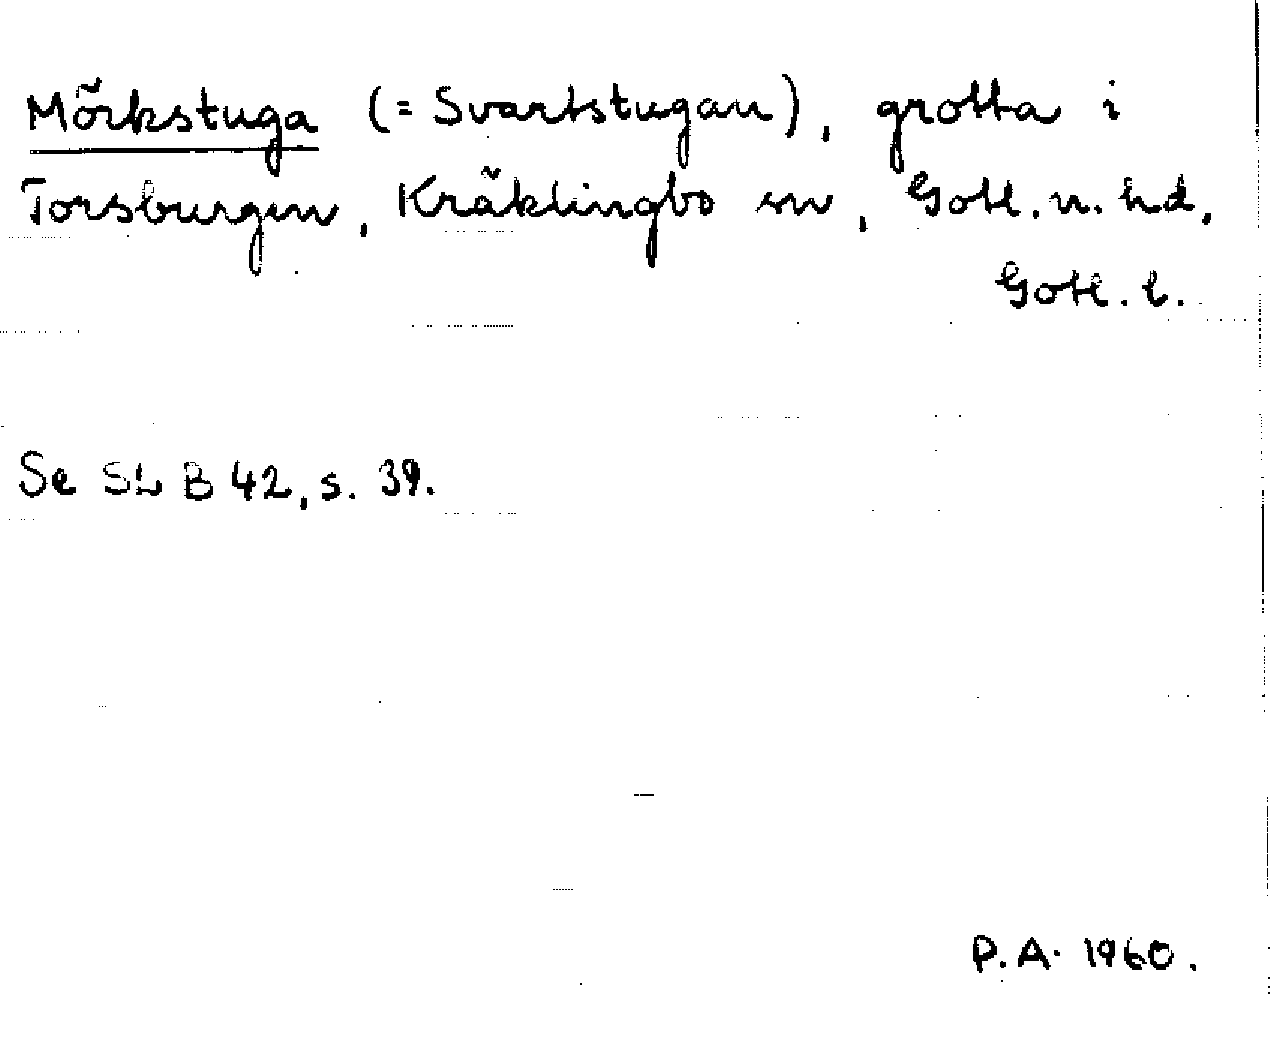 Mörkstuga (= Svartstugan), grotta i
Torsburgen, Kräklingbo sn, Gotl. n. hd,
Gotl. l.
Se SL B 42, s. 39.
P.A. 1960.